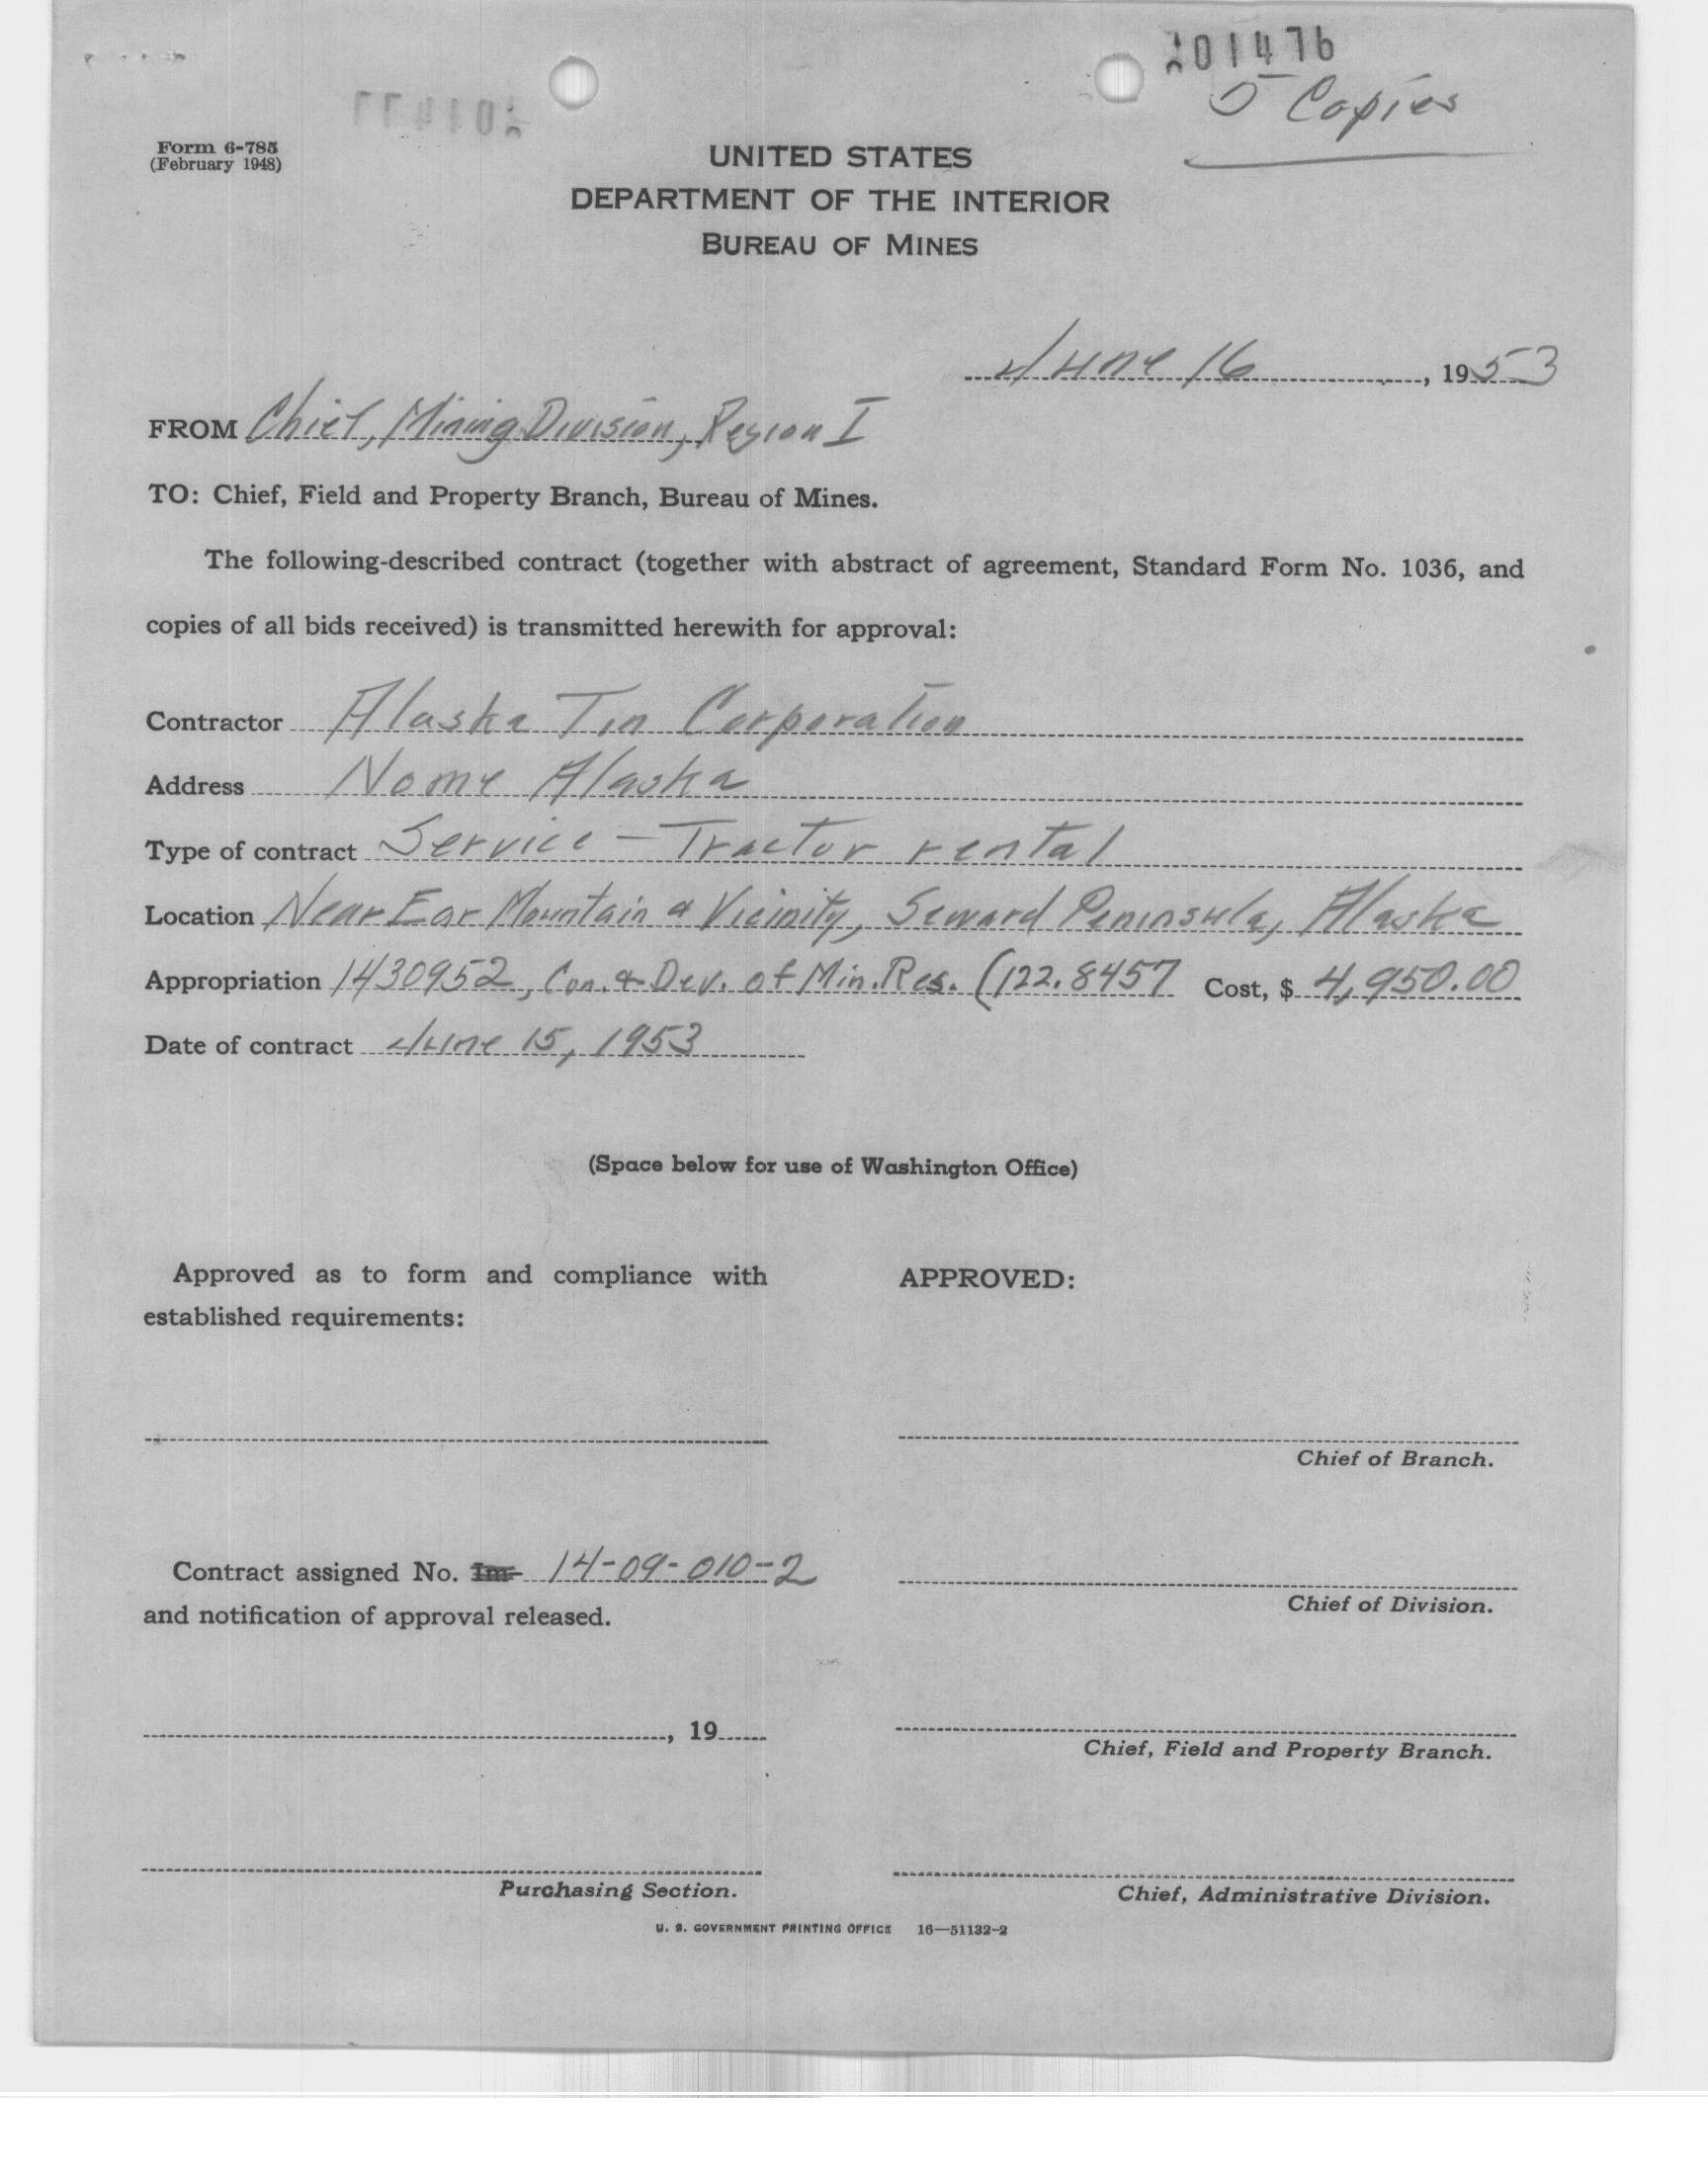 201476
5 Copies
Form 6-785
(February 1948)
UNITED STATES
DEPARTMENT OF THE INTERIOR
BUREAU OF MINES
June 16, 1953
FROM Chief, Mining Division, Region I
TO: Chief, Field and Property Branch, Bureau of Mines.
The following-described contract (together with abstract of agreement, Standard Form No. 1036, and
copies of all bids received) is transmitted herewith for approval:
Contractor Alaska Tin Corporation
Address Nome Alaska
Type of contract Service - Tractor rental
Location Near Ear Mountain & Vicinity, Seward Peninsula, Alaska
Appropriation 1430952, Con. & Dev. of Min. Res. (122.8457 Cost, $ 4,950.00
Date of contract June 15, 1953
(Space below for use of Washington Office)
Approved as to form and compliance with
established requirements:
APPROVED:
Chief of Branch.
Contract assigned No. Im- 14-09-010-2
and notification of approval released.
Chief of Division.
, 19
Chief, Field and Property Branch.
Purchasing Section.
Chief, Administrative Division.
U. S. GOVERNMENT PRINTING OFFICE 16—51132-2